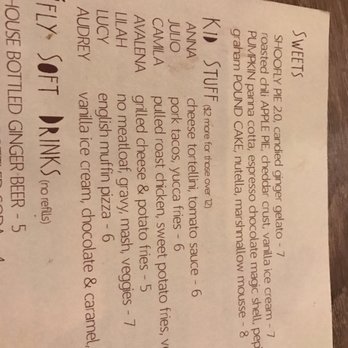 SWEETS
SHOOFLY PIE 2.0, candied ginger gelato - 7
roasted chili APPLE PIE, cheddar crust, vanilla ice cream - 7
PUMPKIN panna cotta, espresso chocolate magic shell,
graham POUND CAKE, nutella, marshmallow mousse - 8
KID STUFF ($2 more for those over 12)
ANNA cheese tortellini, tomato sauce - 6
JULIO pork tacos, yucca fries - 6
CAMILA pulled roast chicken, sweet potato fries,
AVALENA grilled cheese & potato fries - 5
LILAH no meatloaf, gravy, mash, veggies - 7
LUCY english muffin pizza - 6
AUDREY vanilla ice cream, chocolate & caramel,
FLY SOFT DRINKS (no refills)
HOUSE BOTTLED GINGER BEER - 5